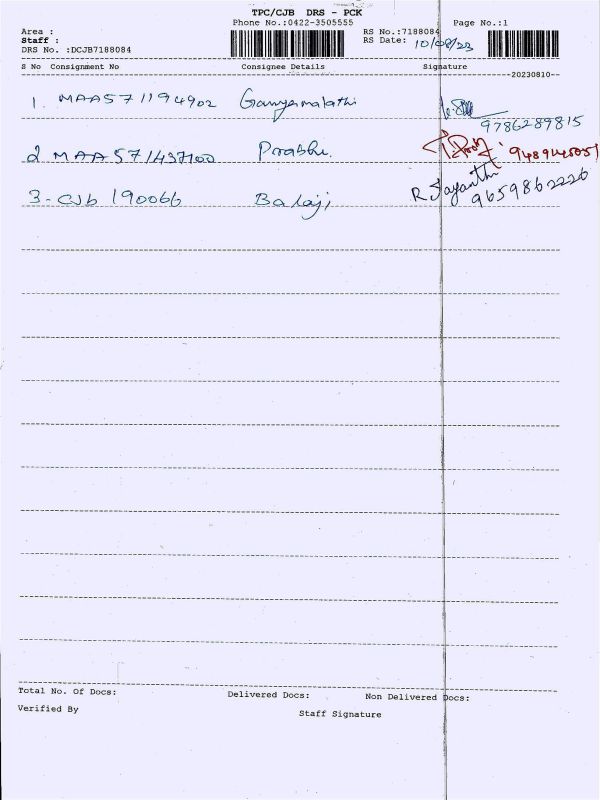 TPC/CJB DRS - PCK
Phone No.:0422-3505555
Page No.:1
Area :
Staff :
DRS No. :DCJB7188084
RS No.:7188084
RS Date: 10/08/23
S No Consignment No Consignee Details Signature
--20230810--
1. MAA571194902
9786289815
2 MAA571437100 Prabhu.
3 - CJb 190066 Balaji R Jayanthi 9659862226
Total No. Of Docs: Delivered Docs: Non Delivered Docs:
Verified By Staff Signature